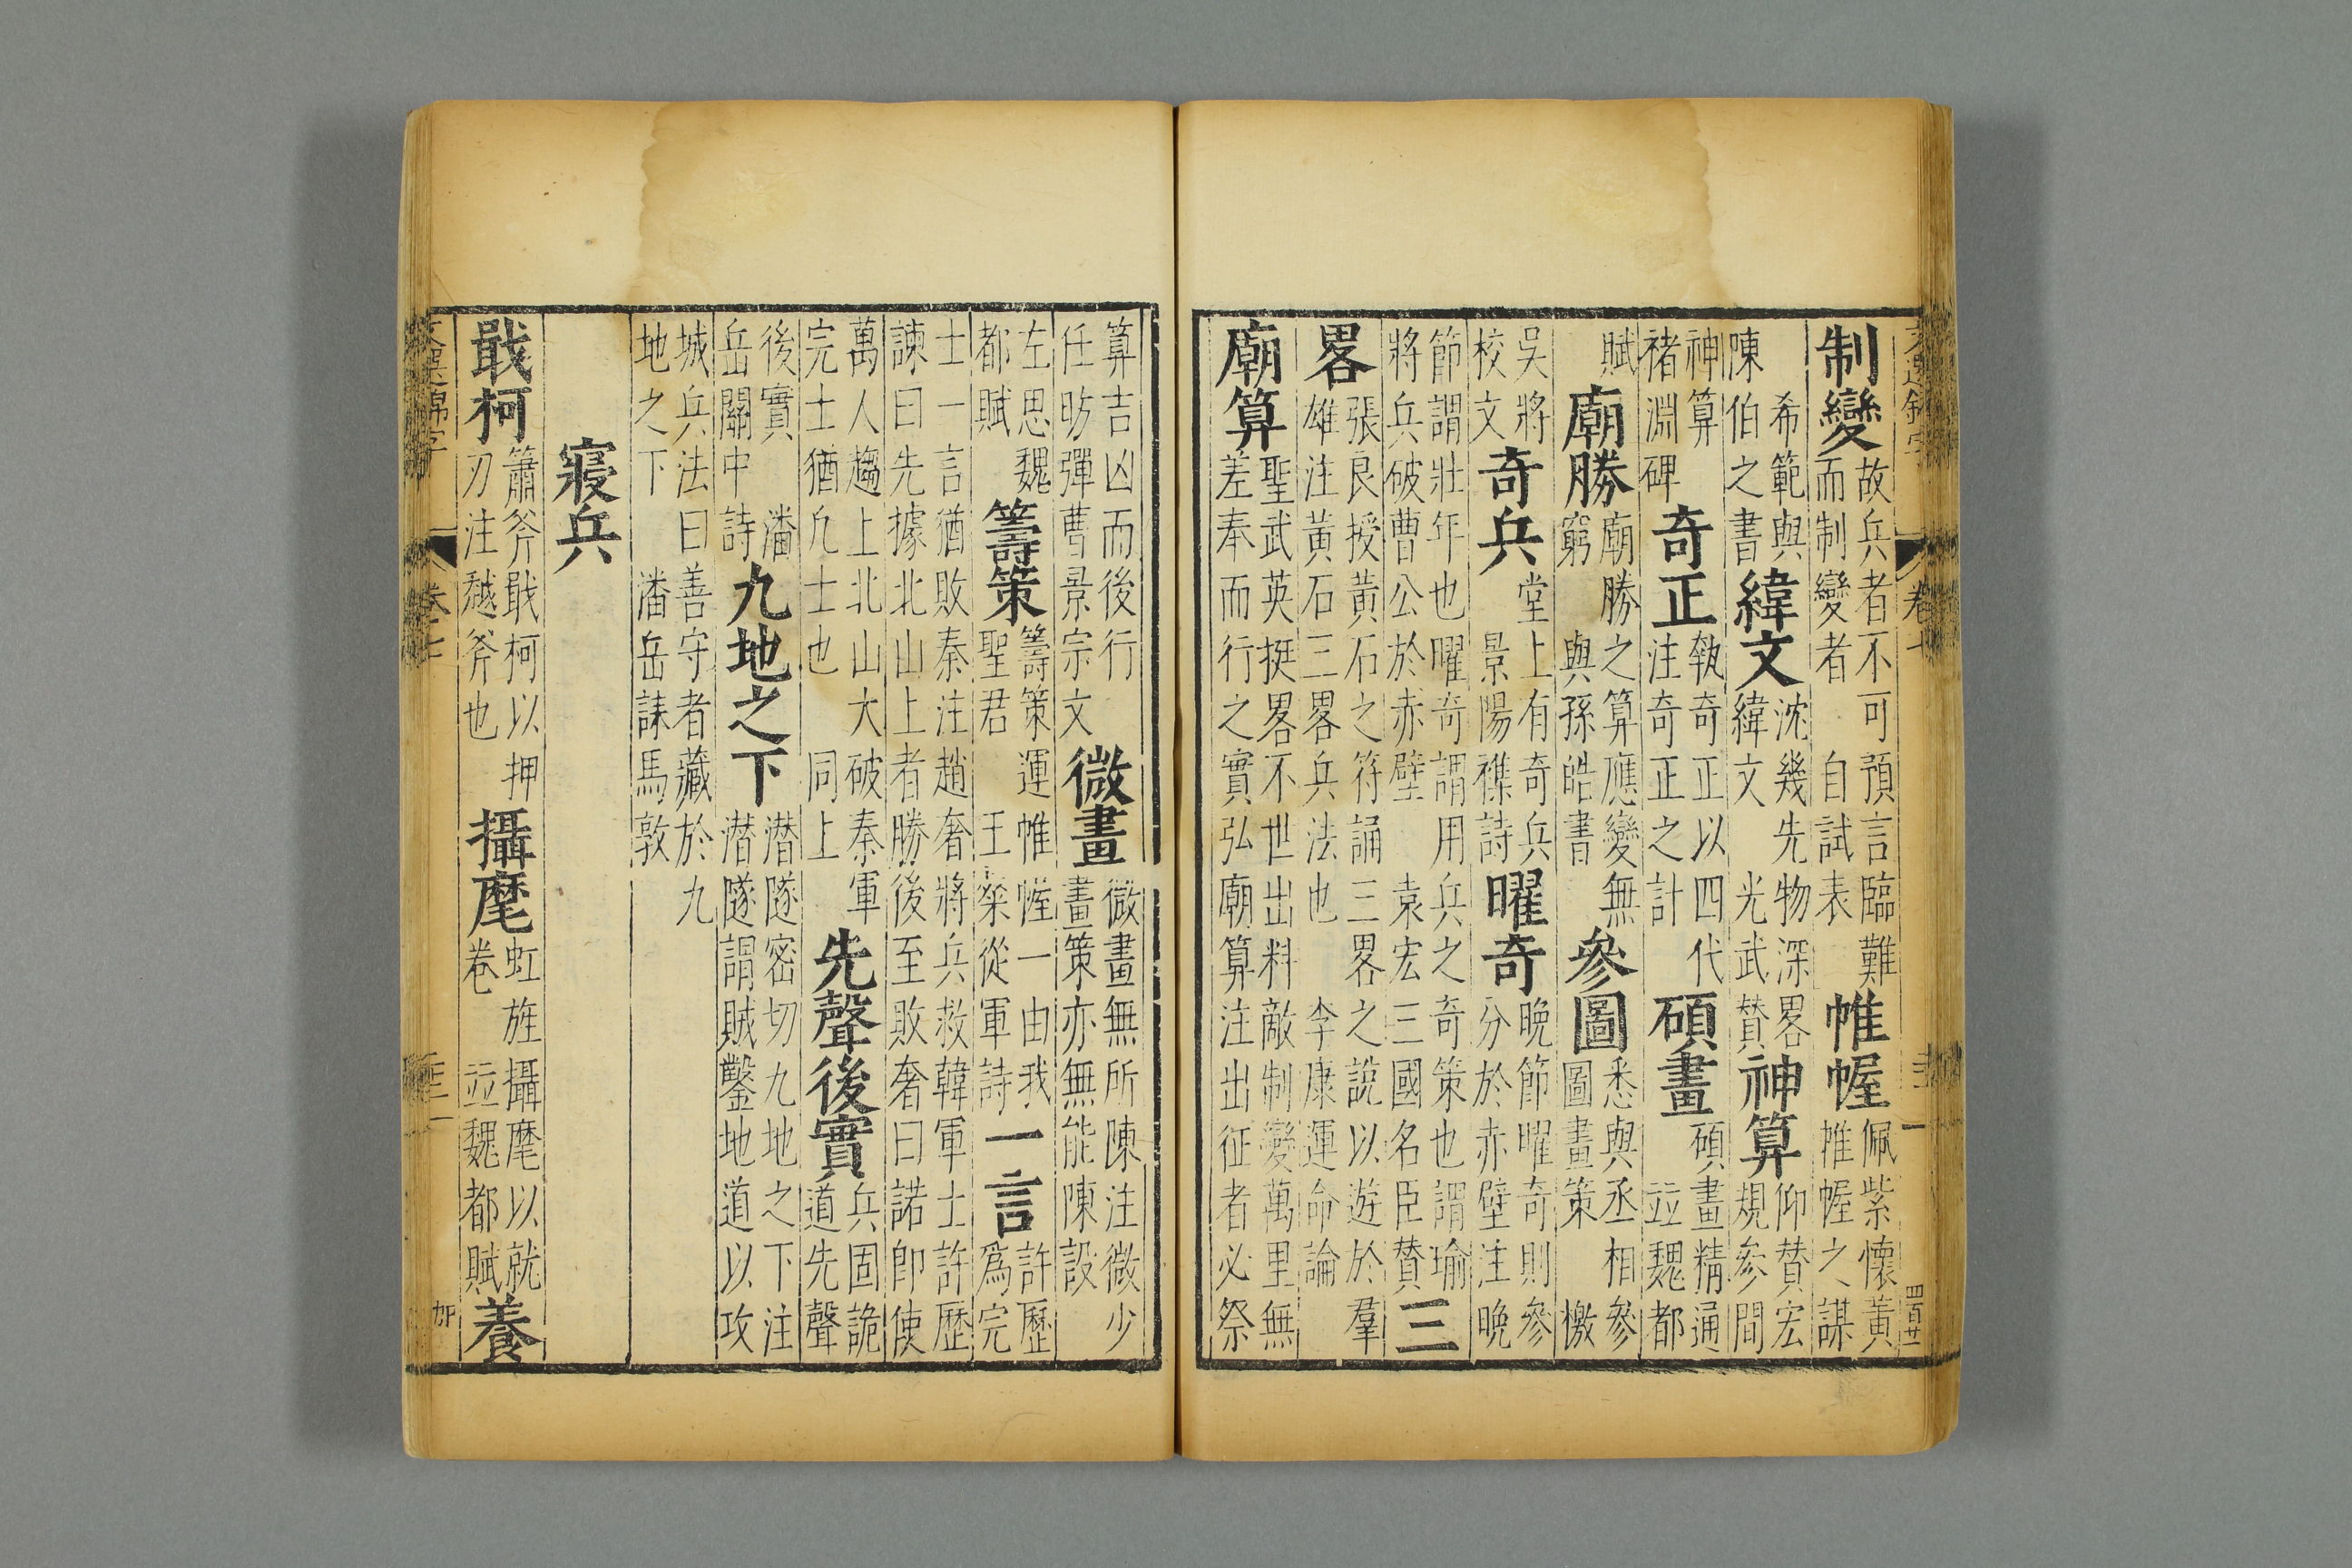 制變故兵者不可預言臨難而制變者 自試表帷幄佩紫懷黃帷幄之謀
希範與陳伯之書緯文沈幾先物深畧緯文 光武贊神算仰贊宏規參問
神算禇淵碑奇正執奇正以四代注奇正之計碩畫碩畫精通 並魏都
賦廟勝廟勝之算應變無窮 與孫皓書參圖悉與丞相參圖畫策 檄
吳將校文奇兵堂上有奇兵 景陽襍詩曜奇晚節曜奇則參分於赤壁注晚
節謂壯年也曜奇謂用兵之奇策也謂瑜將兵破曹公於赤壁 袁宏三國名臣贊三
畧張良授黃石之符誦三畧之說以遊於羣雄注黃石三畧兵法也 李康運命論
廟算聖武英挺畧不世出料敵制變萬里無差奉而行之實弘廟算注出征者必祭
算吉凶而後行 任昉彈曹景宗文微畫微畫無所陳注微少畫策亦無能陳設
左思魏都賦籌策籌策運帷幄一由我聖君 王粲從軍詩一言許歷爲完
士一言猶敗秦注趙奢將兵救韓軍士許歷諫曰先據北山上者勝後至敗奢曰諾即使
萬人趨上北山大破秦軍完士猶凢士也 同上先聲後實兵固詭道先聲
後實 潘岳關中詩九地之下潜隧密切九地之下注潜隧謂賊鑿地道以攻
城兵法曰善守者藏於九地之下 潘岳誄馬敦
寢兵
戢柯簫斧戢柯以押刃注越斧也攝麾虹旌攝麾以就卷 並魏都賦養
卷七